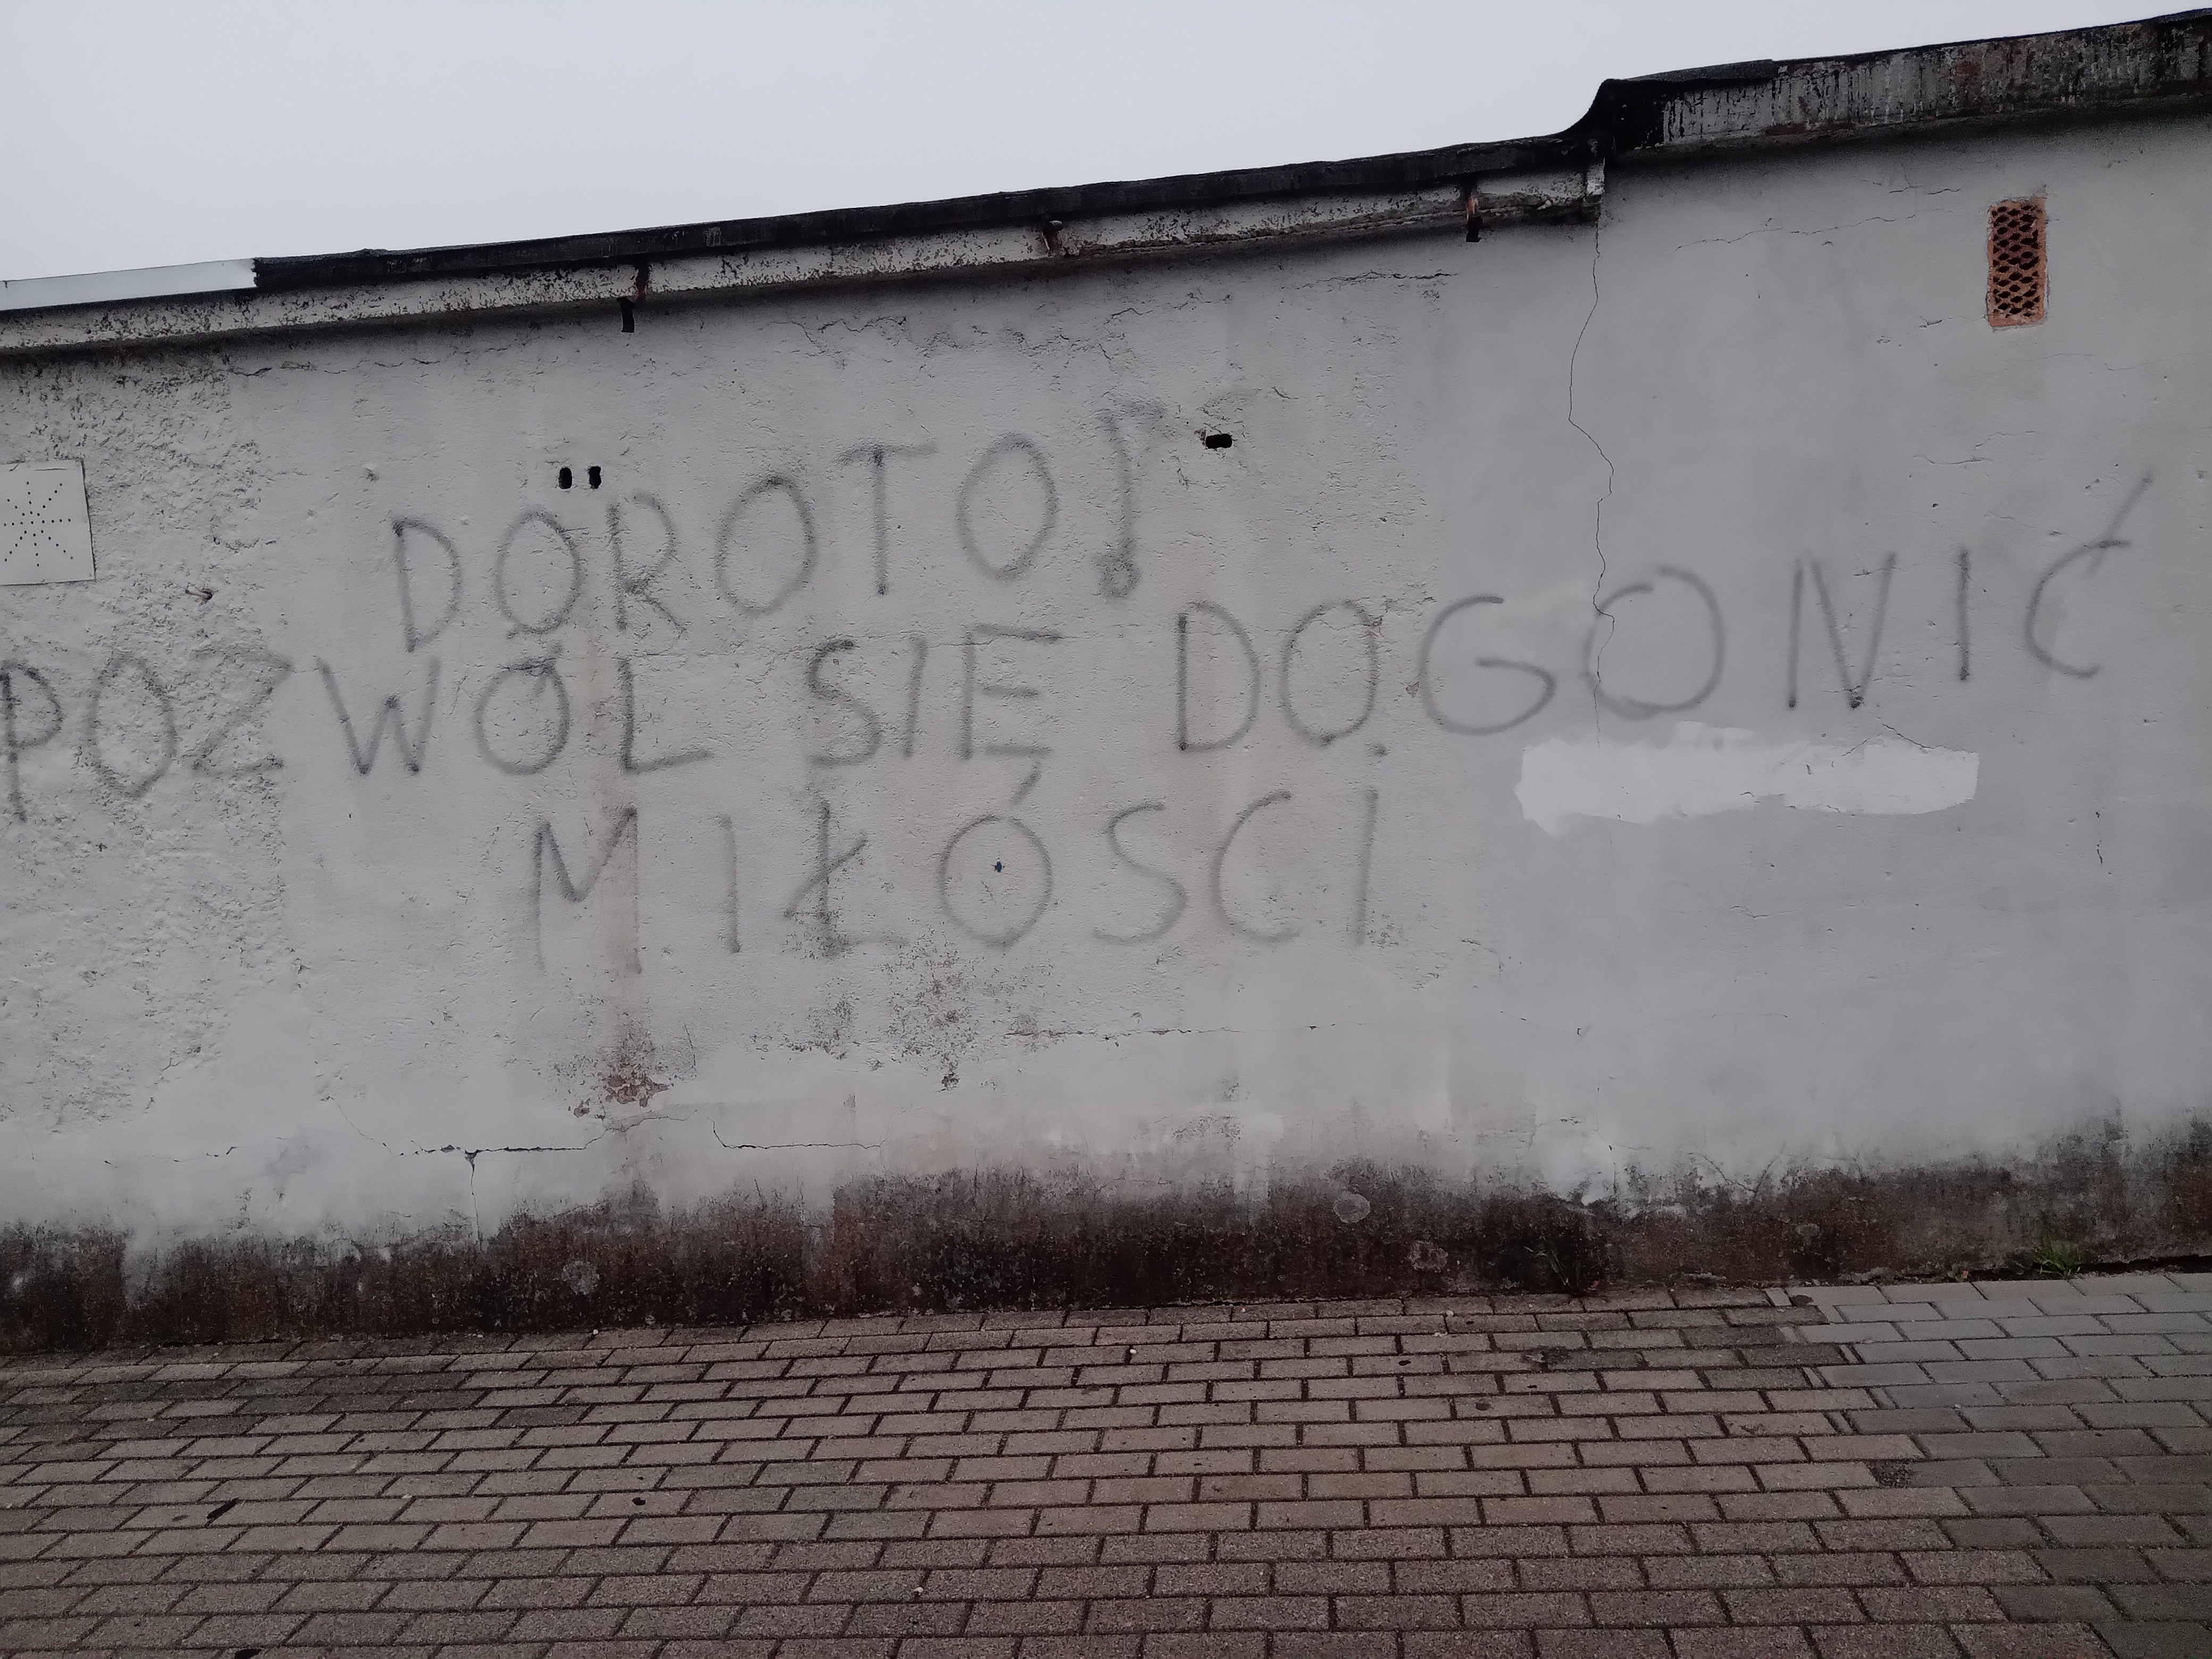 DOROTO!
POZWÓL SIĘ DOGONIĆ
MIŁOŚCI